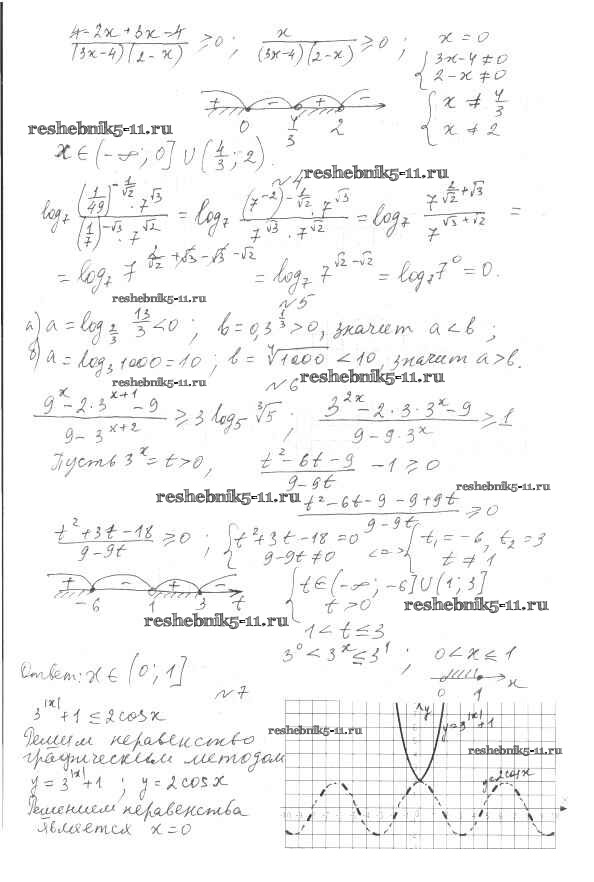 (4-2x+3x-4)/((3x-4)(2-x)) ≥ 0 ; x/((3x-4)(2-x)) ≥ 0 ; x = 0
{ 3x-4 ≠ 0
2-x ≠ 0
+ - + -
0 4/3 2
{ x ≠ 4/3
x ≠ 2
reshebnik5-11.ru
x ∈ (-∞; 0] ∪ (4/3; 2).
№4
reshebnik5-11.ru
log₇ ((1/49)^(-1/√2) · 7^√3)/((1/7)^(-√3) · 7^√2) = log₇ ((7^(-2))^(-1/√2) · 7^√3)/(7^√3 · 7^√2) = log₇ 7^(2/√2+√3)/7^(√3+√2) =
= log₇ 7^(2/√2+√3-√3-√2) = log₇ 7^(√2-√2) = log₇ 7⁰ = 0.
reshebnik5-11.ru
№5
а) a = log_(2/3) 13/3 < 0 ; b = 0,3^(1/3) > 0, значит a < b ;
б) a = log₃ 1000 = 10 ; b = ∜1000 < 10, значит a > b.
reshebnik5-11.ru
№6
reshebnik5-11.ru
(9^x - 2·3^(x+1) - 9)/(9 - 3^(x+2)) ≥ 3 log₅ ∛5 ; (3^(2x) - 2·3·3^x - 9)/(9 - 9·3^x) ≥ 1
Пусть 3^x = t > 0, (t² - 6t - 9)/(9 - 9t) - 1 ≥ 0
reshebnik5-11.ru
reshebnik5-11.ru
(t² - 6t - 9 - 9 + 9t)/(9 - 9t) ≥ 0
(t² + 3t - 18)/(9 - 9t) ≥ 0 ; { t² + 3t - 18 = 0 <=> { t₁ = -6, t₂ = 3
9 - 9t ≠ 0 t ≠ 1
+ - + -
-6 1 3 t
{ t ∈ (-∞; -6] ∪ (1; 3]
t > 0
reshebnik5-11.ru
reshebnik5-11.ru
1 < t ≤ 3
3⁰ < 3^x ≤ 3¹ ; 0 < x ≤ 1
0 1 x
Ответ: x ∈ (0; 1]
№7
3^|x| + 1 ≤ 2cosx
Решим неравенство
графическим методом
y = 3^|x| + 1 ; y = 2cosx
Решением неравенства
является x = 0
reshebnik5-11.ru
y
y=3^|x|+1
reshebnik5-11.ru
y=2cosx
x